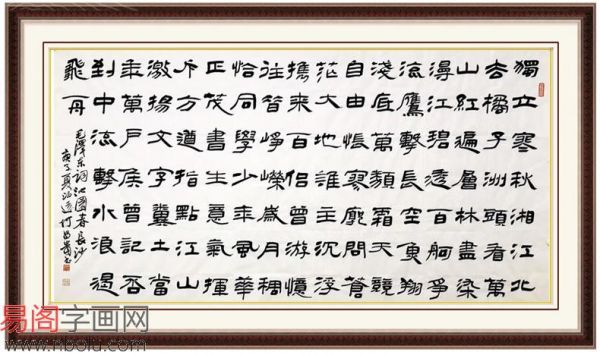 獨立寒秋湘江北
去橘子洲頭看萬
山紅遍層林盡染
漫江碧透百舸爭
流鷹擊長空魚翔
淺底萬類霜天競
自由悵寥廓問蒼
茫大地誰主沉浮
攜來百侶曾游憶
往昔崢嶸歲月稠
恰同學少年風華
正茂書生意氣揮
斥方遒指點江山
激揚文字糞土當
年萬戶侯曾記否
到中流擊水浪遏
飛舟
毛澤东詞沁園春長沙
庚子夏
易阁字画网
www.nbolu.com